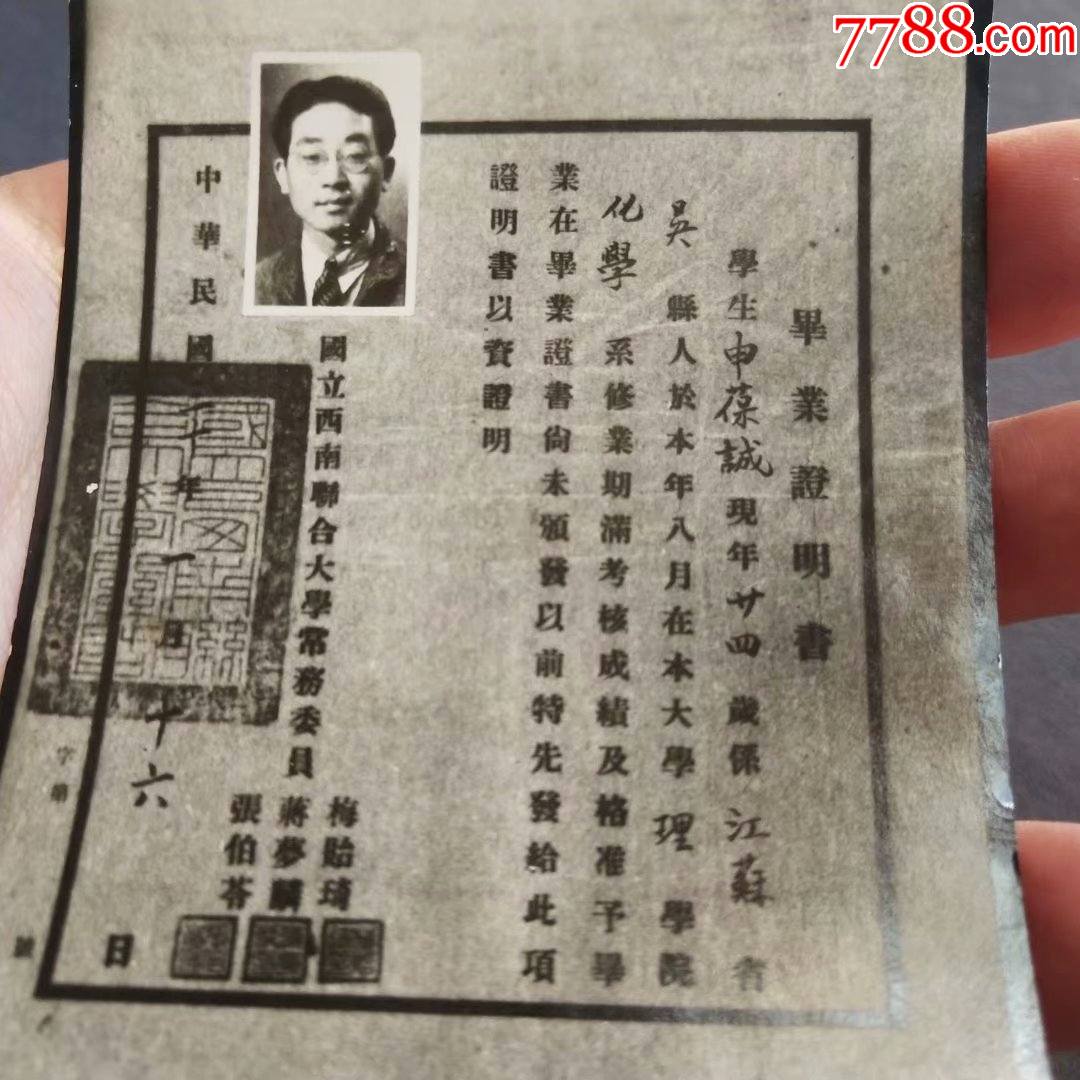 7788.com
畢業證明書
學生申葆誠現年廿四歲係江蘇省
吳縣人於本年八月在本大學理學院
化學系修業期滿考核成績及格准予畢
業在畢業證書尙未頒發以前特先發給此項
證明書以資證明
國立西南聯合大學常務委員
梅貽琦
蔣夢麟
張伯苓
中華民國
年一月十六日
字第號